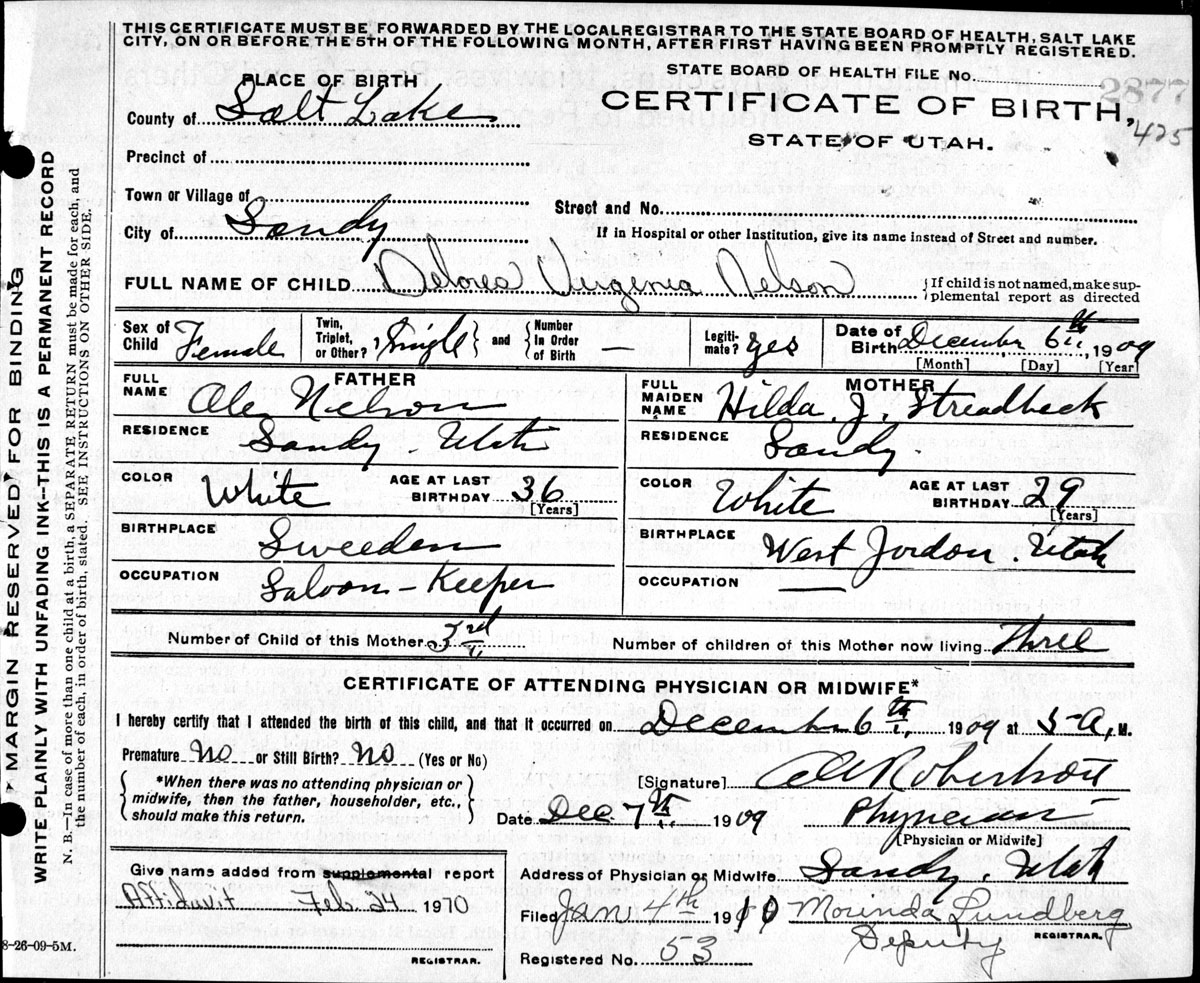 THIS CERTIFICATE MUST BE FORWARDED BY THE LOCAL REGISTRAR TO THE STATE BOARD OF HEALTH, SALT LAKE
CITY, ON OR BEFORE THE 5TH OF THE FOLLOWING MONTH, AFTER FIRST HAVING BEEN PROMPTLY REGISTERED.
STATE BOARD OF HEALTH FILE No. 2877
PLACE OF BIRTH
CERTIFICATE OF BIRTH,
425
County of Salt Lake
STATE OF UTAH.
Precinct of
Town or Village of
Street and No.
City of Sandy
If in Hospital or other Institution, give its name instead of Street and number.
FULL NAME OF CHILD Delores Virginia Nelson
{If child is not named, make sup-
plemental report as directed
Sex of Child Female
Twin, Triplet, or Other? Single } and { Number In Order of Birth —
Legiti-mate? yes
Date of Birth December 6th, 1909
[Month] [Day] [Year]
FATHER
FULL NAME Ole Nelson
MOTHER
FULL MAIDEN NAME Hilda J. Streadbeck
RESIDENCE Sandy Utah
RESIDENCE Sandy.
COLOR White AGE AT LAST BIRTHDAY 36 [Years]
COLOR White AGE AT LAST BIRTHDAY 29 [Years]
BIRTHPLACE Sweeden
BIRTHPLACE West Jordon. Utah
OCCUPATION Saloon-Keeper
OCCUPATION —
Number of Child of this Mother 3rd
Number of children of this Mother now living Three
CERTIFICATE OF ATTENDING PHYSICIAN OR MIDWIFE*
I hereby certify that I attended the birth of this child, and that it occurred on December 6th, 1909 at 5-A, M.
Premature No or Still Birth? No (Yes or No)
{ *When there was no attending physician or
midwife, then the father, householder, etc.,
should make this return. }
[Signature] Robertson
Date Dec. 7th, 1909 Physician
[Physician or Midwife]
Give name added from supplemental report
Affidavit Feb. 24 1970
REGISTRAR.
Address of Physician or Midwife Sandy. Utah
Filed Jan 4th 1910 Morinda Lundberg
Deputy REGISTRAR.
Registered No. 53
8-26-09-5M.
MARGIN RESERVED FOR BINDING
WRITE PLAINLY WITH UNFADING INK—THIS IS A PERMANENT RECORD
N. B.—In case of more than one child at a birth, a SEPARATE RETURN must be made for each, and
the number of each, in order of birth, stated. SEE INSTRUCTIONS ON OTHER SIDE.